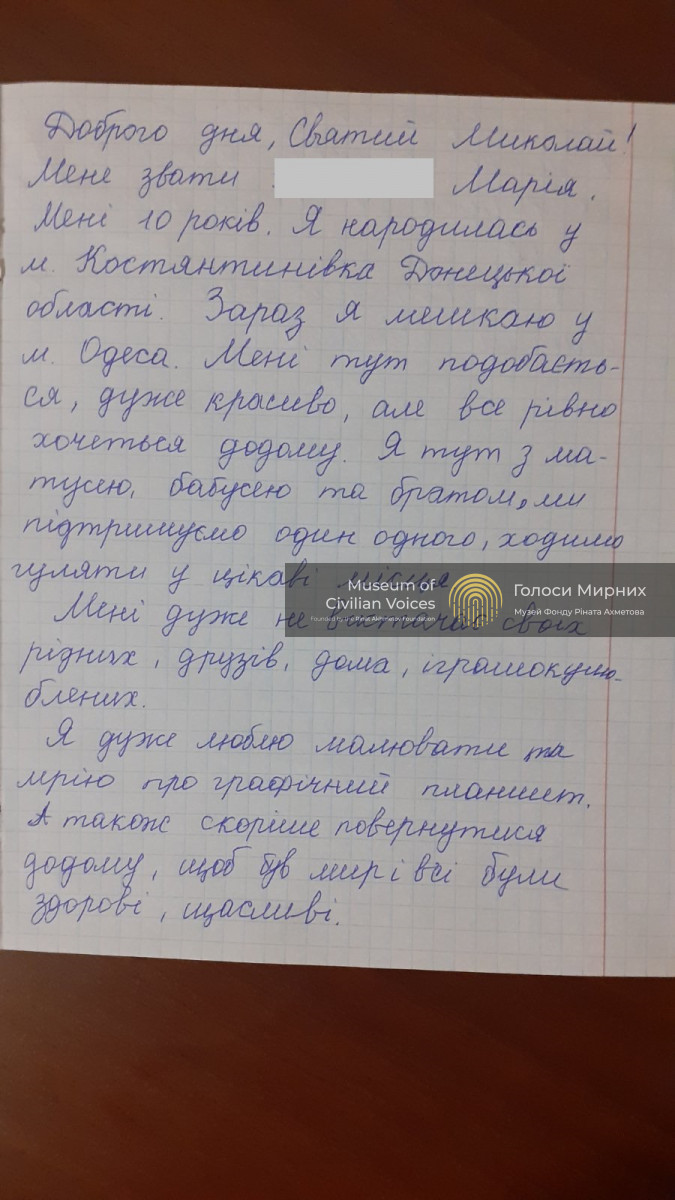 Доброго дня, Святий Миколай!
Мене звати Марія.
Мені 10 років. Я народилась у
м. Костянтинівка Донецької
області. Зараз я мешкаю у
м. Одеса. Мені тут подобаєть-
ся, дуже красиво, але все рівно
хочеться додому. Я тут з ма-
тусею, бабусею та братом, ми
підтримуємо один одного, ходимо
гуляти у цікаві місця
Museum of
Civilian Voices
Founded by the Rinat Akhmetov Foundation
Голоси Мирних
Музей Фонду Ріната Ахметова
Мені дуже не вистачає своіх
рідних, друзів, дома, іграшок улю-
блених.
Я дуже люблю малювати та
мрію про графічний планшет.
А також скоріше повернутися
додому, щоб був мир і всі були
здорові, щасливі.